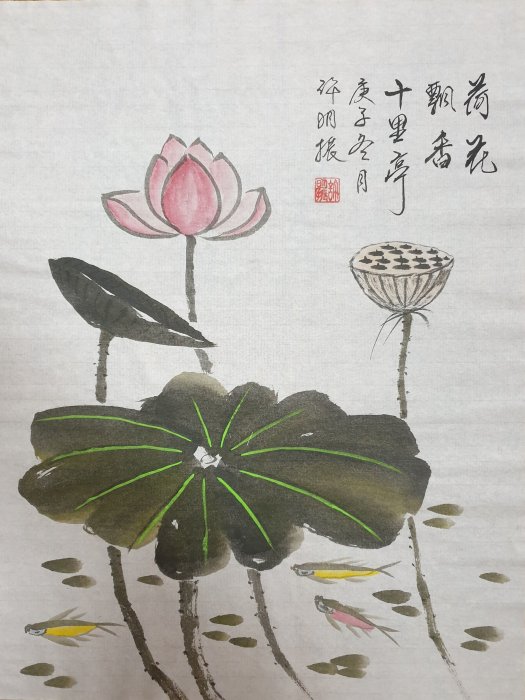 荷花
飘香
十里亭
庚子冬月
许明振